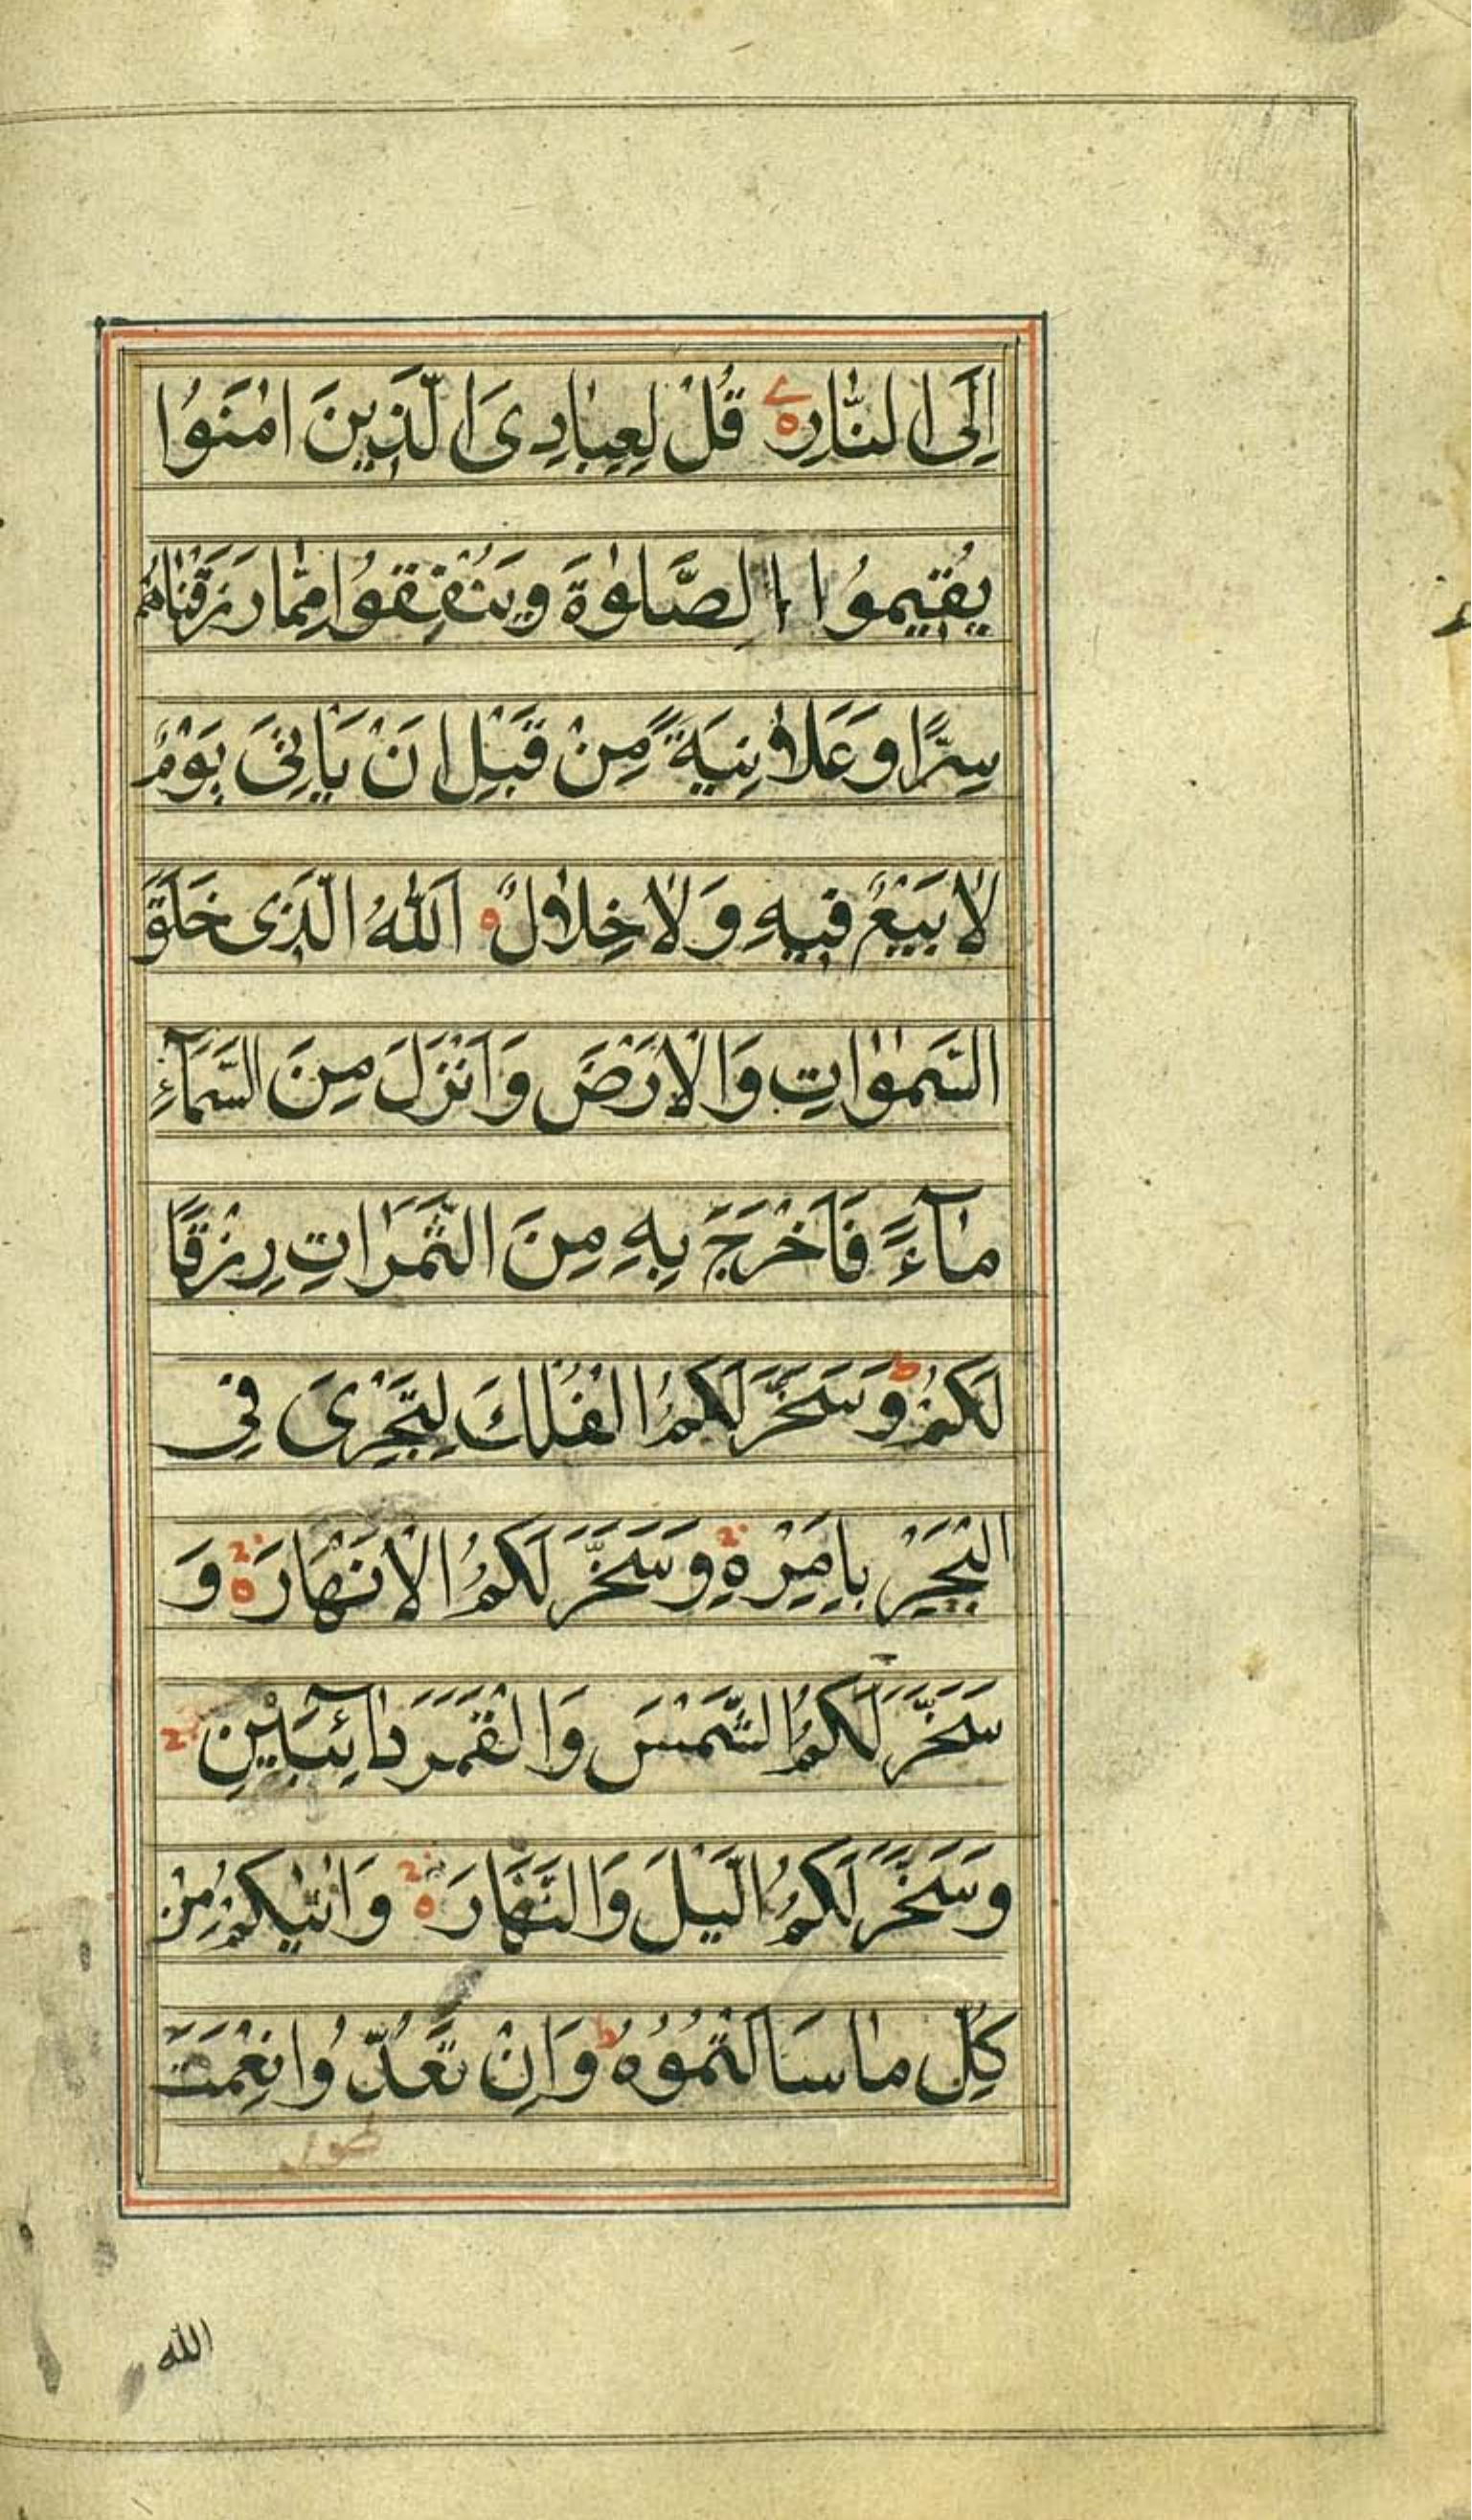 اِلَی النّٰارِ قُلْ لِعِبٰادِیَ الَّذِینَ اٰمَنُوا
یُقیمُوا الصَّلوٰةَ وَیُنْفِقُوا مِمّٰا رَزَقْنٰاهُمْ
سِرًّا وَعَلاٰنِیَةً مِنْ قَبْلِ اَنْ یَأتِیَ یَوْمٌ
لاٰ بَیْعٌ فیهِ وَلاٰ خِلاٰلٌ اَللّٰهُ الَّذی خَلَقَ
السَّمٰوٰاتِ وَالْاَرْضَ وَاَنْزَلَ مِنَ السَّمَآءِ
مٰآءً فَاَخْرَجَ بِهِ مِنَ الثَّمَرٰاتِ رِزْقًا
لَکُمْ وَسَخَّرَ لَکُمُ الْفُلْكَ لِتَجْرِیَ فِی
الْبَحْرِ بِاَمْرِهِ وَسَخَّرَ لَکُمُ الْاَنْهٰارَ وَ
سَخَّرَ لَکُمُ الشَّمْسَ وَالْقَمَرَ دٰآئِبَیْنِ
وَسَخَّرَ لَکُمُ الَّیْلَ وَالنَّهٰارَ وَاٰتٰیکُمْ مِنْ
کُلِّ مٰا سَاَلْتُمُوهُ وَاِنْ تَعُدُّوا نِعْمَتَ
الله